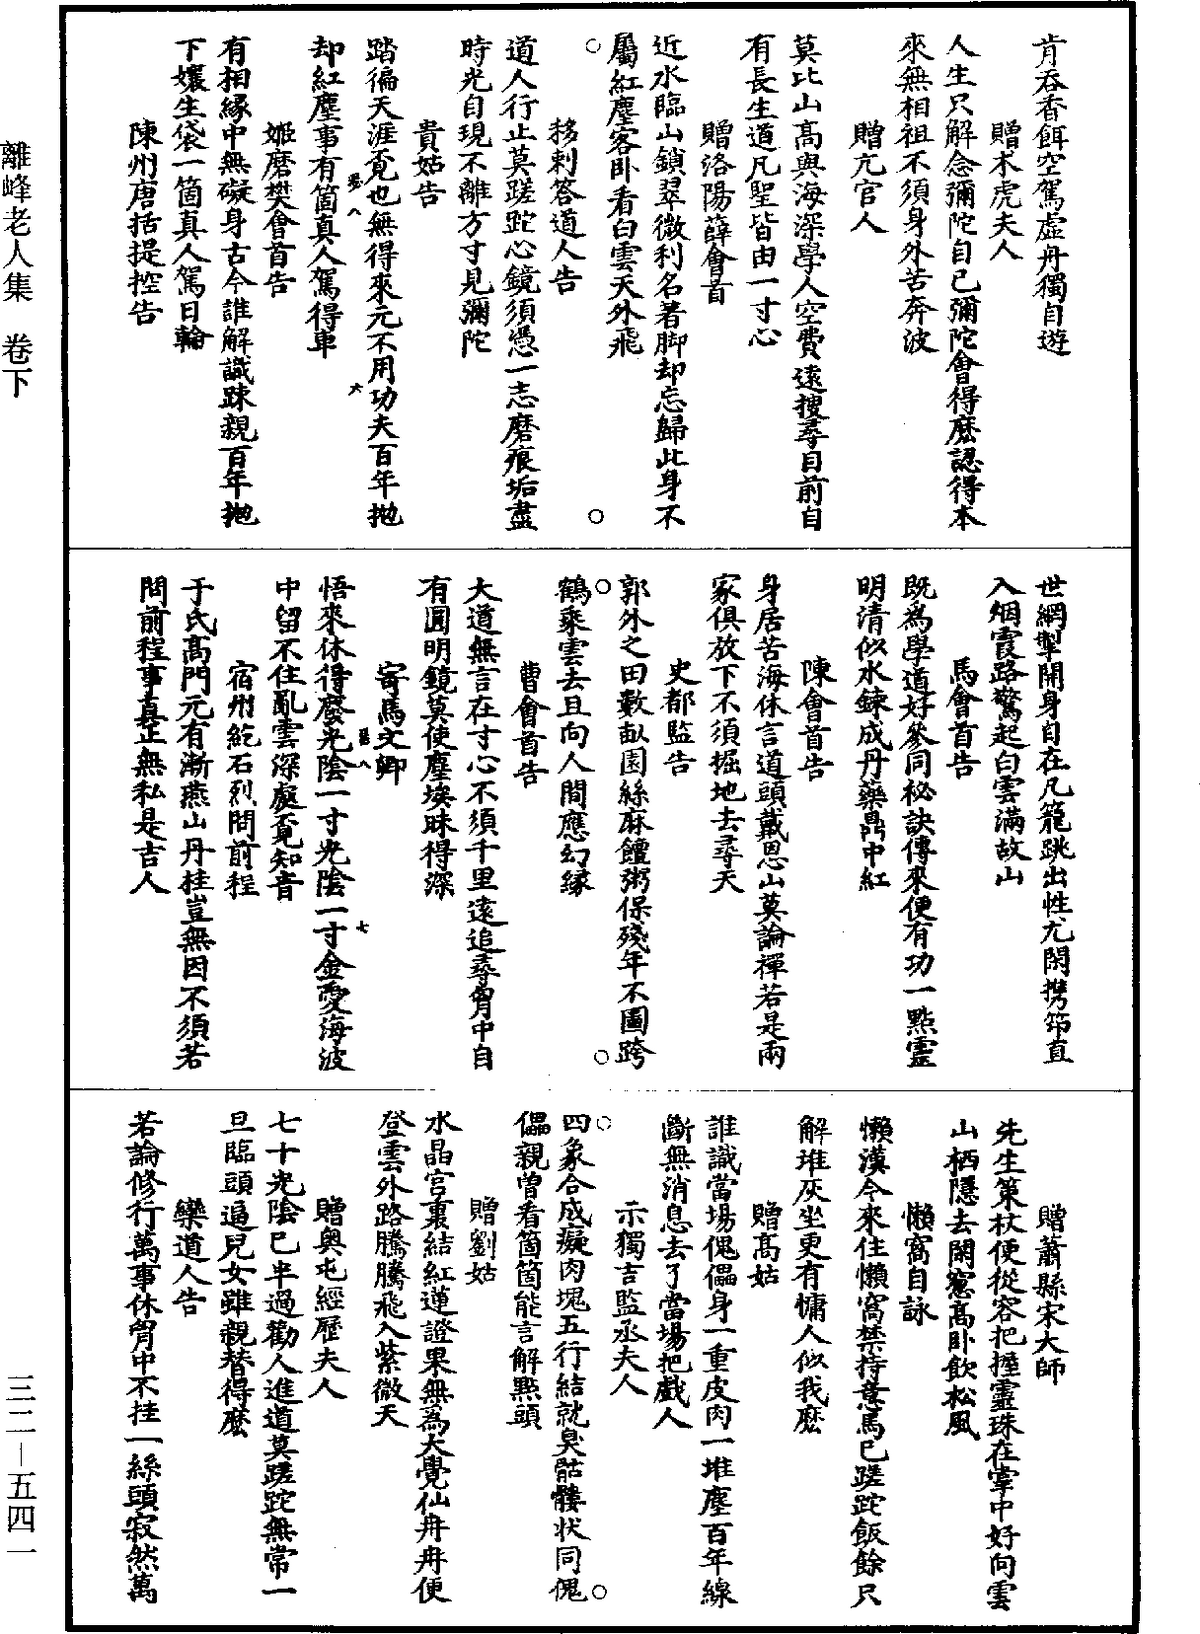 肯吞香餌空駕虛舟獨自遊
贈朮虎夫人
人生只解念彌陀自己彌陀會得麽認得本
來無相祖不須身外苦奔波
贈亢官人
莫比山高與海深學人空費遠搜尋目前自
有長生道凡聖皆由一寸心
贈洛陽薛會首
近水臨山鎖翠微利名著脚却忘歸此身不
屬紅塵客卧看白雲天外飛
移剌答道人告
道人行止莫蹉跎心鏡須憑一志磨痕垢盡
時光自現不離方寸見彌陀
貴姑告
踏徧天涯覓也無得來元不用功夫百年抛
却紅塵事有箇真人駕得車
姬磨樊會首告
有相緣中無礙身古今誰解識踈親百年抛
下孃生袋一箇真人駕日輪
陳州唐括提控告
世網掣開身自在凡籠跳出性尤閑攜筇直
入烟霞路驚起白雲滿故山
馬會首告
既爲學道好參同秘訣傳來便有功一點靈
明清似水鍊成丹藥鼎中紅
陳會首告
身居苦海休言道頭戴恩山莫論禪若是兩
家俱放下不須掘地去尋天
史都監告
郭外之田數畝園絲麻饘粥保殘年不圖跨
鶴乘雲去且向人間應幻緣
曹會首告
大道無言在寸心不須千里遠追尋胷中自
有圓明鏡莫使塵埃昧得深
寄馬文卿
悟來休得廢光陰一寸光陰一寸金愛海波
中留不住亂雲深處覓知音
宿州紇石烈問前程
于氏高門元有漸燕山丹桂豈無因不須苦
問前程事真正無私是吉人
贈蕭縣宋大師
先生策杖便從容把握靈珠在掌中好向雲
山栖隱去閑窻高卧飲松風
懶窩自詠
懶漢今來住懶窩禁持意馬已蹉跎飯餘只
解堆灰坐更有慵人似我麽
贈高姑
誰識當場傀儡身一重皮肉一堆塵百年線
斷無消息去了當場把戲人
示獨吉監丞夫人
四象合成癡肉塊五行結就臭骷髏狀同傀
儡親曾看箇箇能言解點頭
贈劉姑
水晶宮裏結紅蓮證果無爲大覺仙冉冉便
登雲外路騰騰飛入紫微天
贈奧屯經歷夫人
七十光陰已半過勸人進道莫蹉跎無常一
旦臨頭逼兒女雖親替得麽
欒道人告
若論修行萬事休胷中不挂一絲頭寂然萬
離峰老人集　卷下
三二—五四一